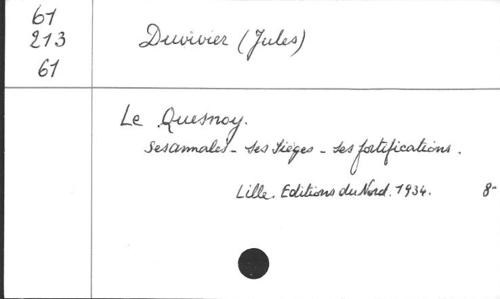 61
213
61
Duvivier (Jules)
Le Quesnoy.
Ses annales - Ses Sièges - Ses fortifications.
Lille. Editions du Nord. 1934. 8-